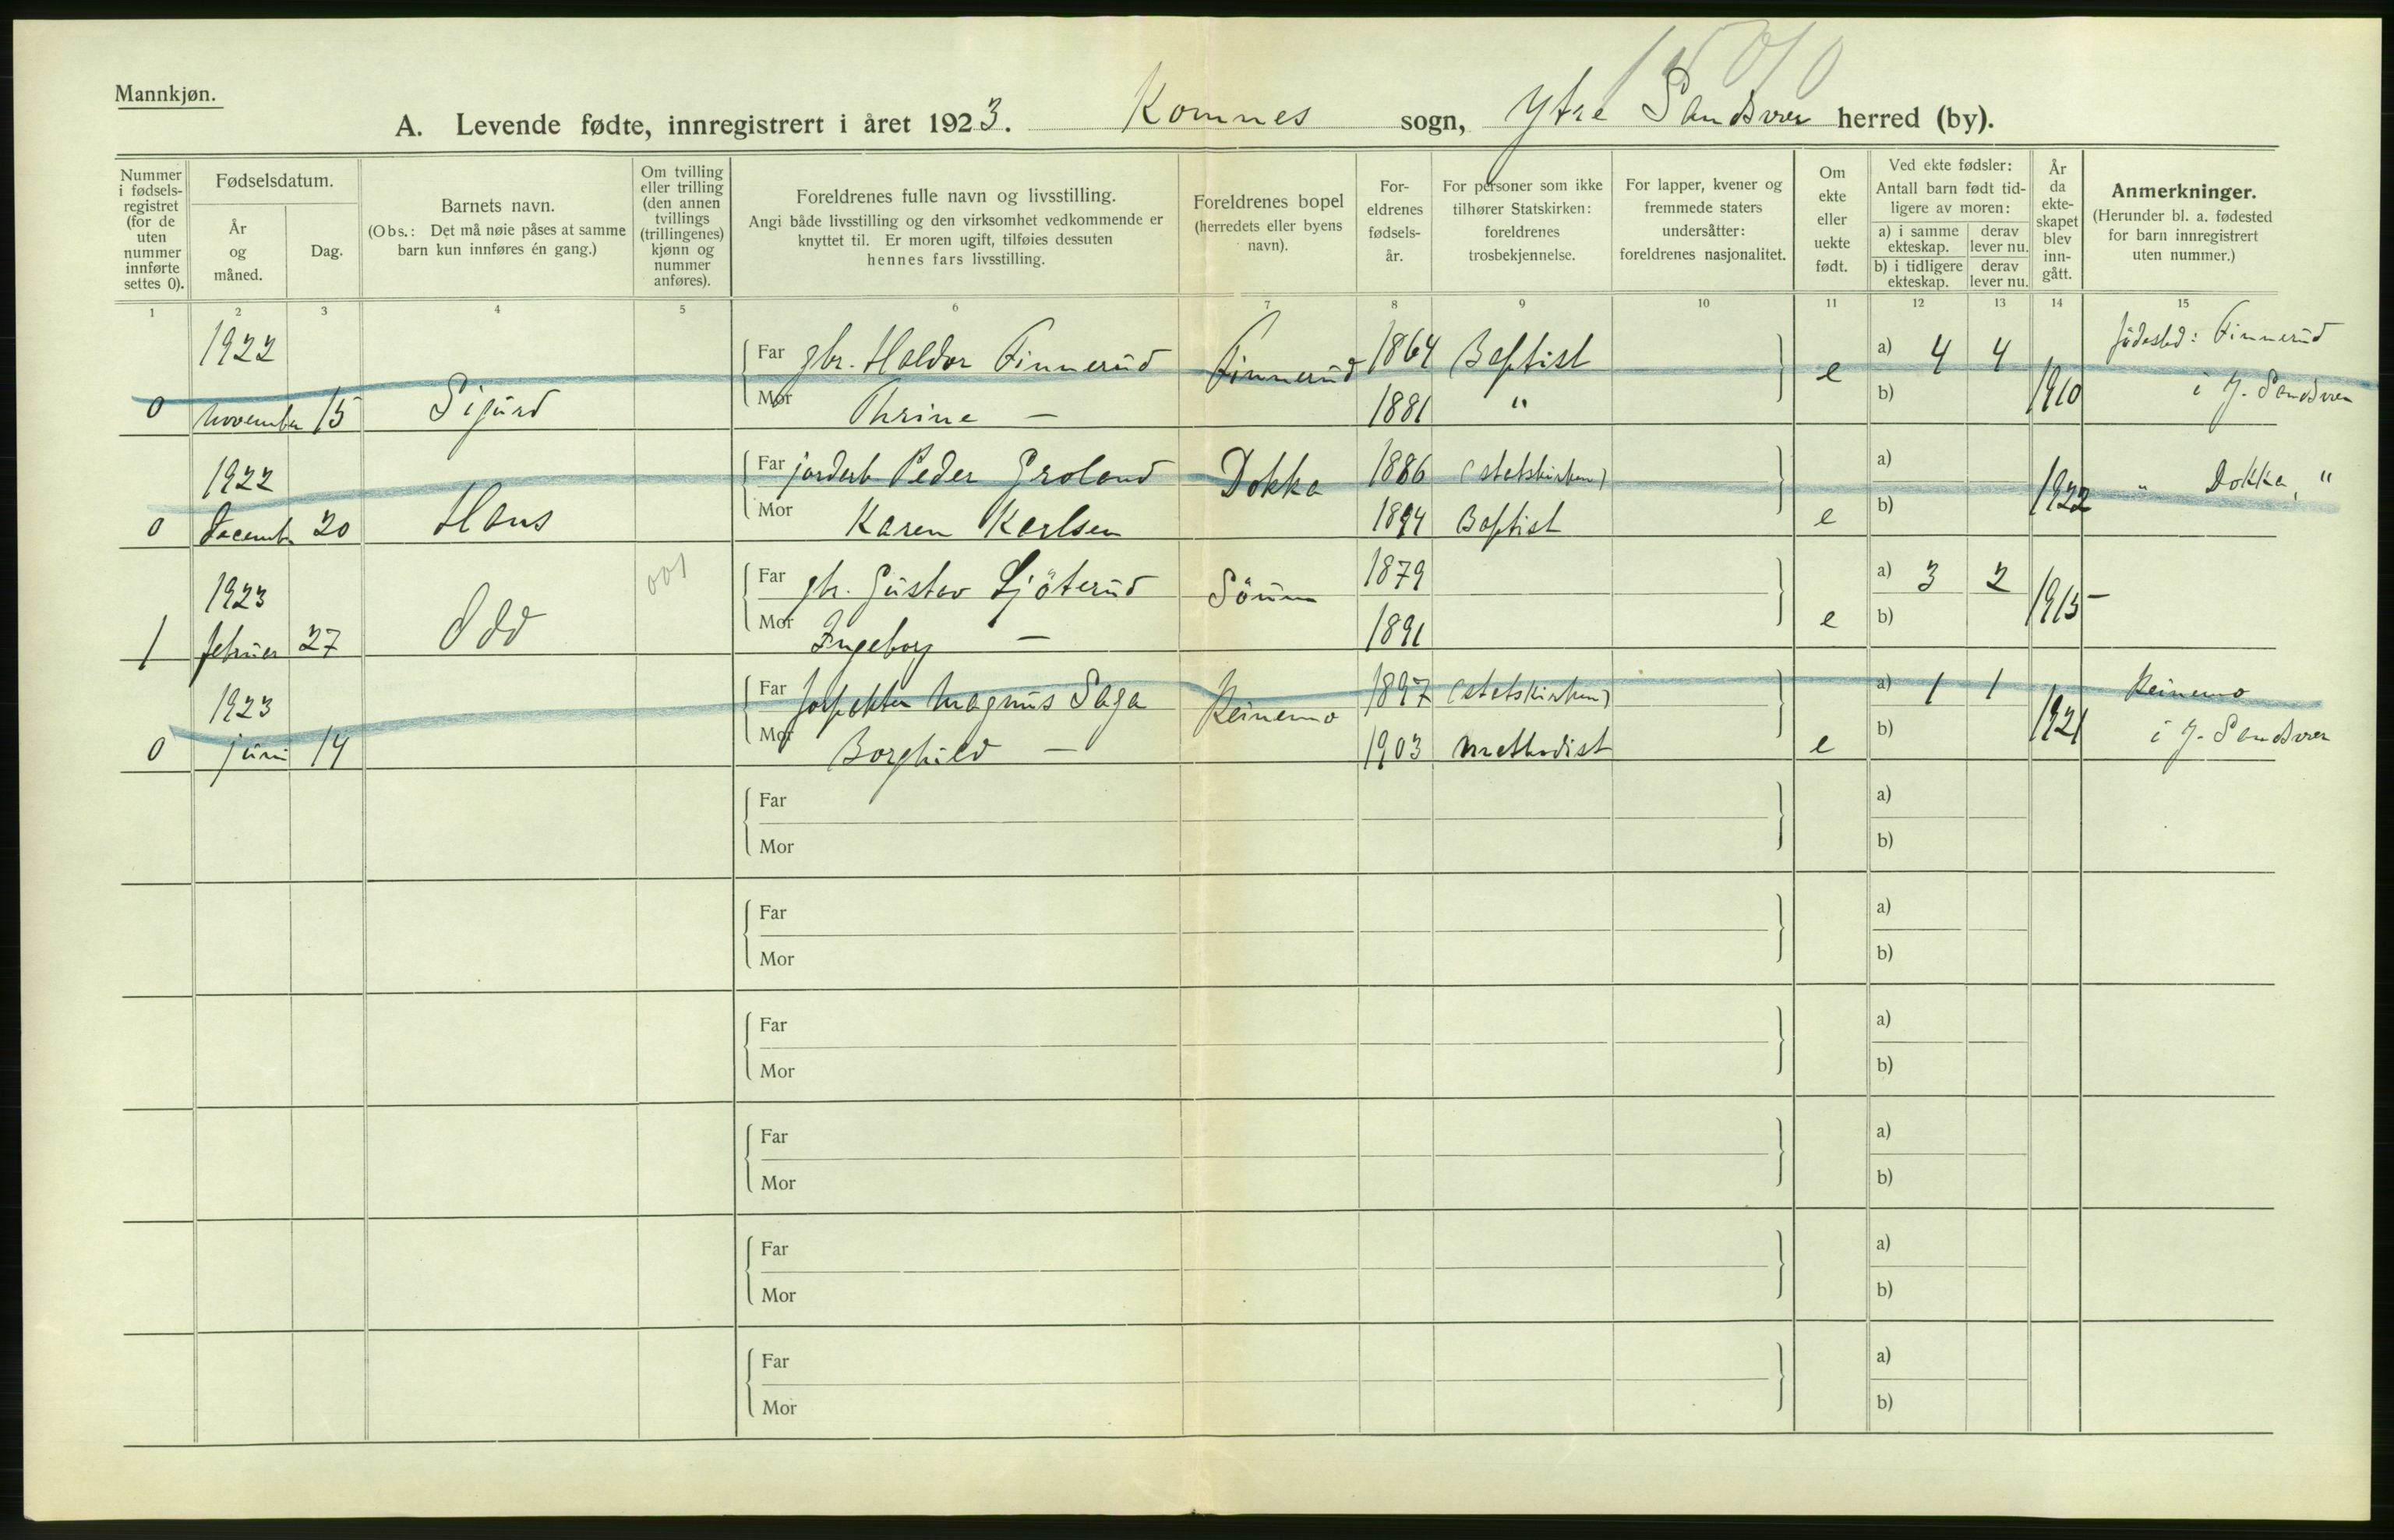 Mannkjøn.
A. Levende fødte, innregistrert i året 1923. Komnes sogn, Ytre Sandsver herred (by).
Nummer i fødsels-registret (for de uten nummer innførte settes 0).
Fødselsdatum.
År og måned.
Dag.
Barnets navn.
(Obs.: Det må nøie påses at samme barn kun innføres én gang.)
Om tvilling eller trilling (den annen tvillings (trillingenes) kjønn og nummer anføres).
Foreldrenes fulle navn og livsstilling.
Angi både livsstilling og den virksomhet vedkommende er knyttet til. Er moren ugift, tilføies dessuten hennes fars livsstilling.
Foreldrenes bopel (herredets eller byens navn).
For-eldrenes fødsels-år.
For personer som ikke tilhører Statskirken: foreldrenes trosbekjennelse.
For lapper, kvener og fremmede staters undersåtter: foreldrenes nasjonalitet.
Om ekte eller uekte født.
Ved ekte fødsler:
Antall barn født tid-ligere av moren:
a) i samme ekteskap. derav lever nu.
b) i tidligere ekteskap. derav lever nu.
År da ekte-skapet blev inn-gått.
Anmerkninger.
(Herunder bl. a. fødested for barn innregistrert uten nummer.)
1 2 3 4 5 6 7 8 9 10 11 12 13 14 15
1922 Far gbr. Haldor Finnerud Finnerud 1864 Baptist e a) 4 4 1910 fødested: Finnerud
0 november 15 Sigurd Mor Thrine — 1881 " b) i Y. Sandsver
1922 Far jordarb Peder Groland Dokka 1886 (statskirken) a) 1922 " Dokka, "
0 december 20 Hans Mor Karen Karlsen 1894 Baptist e b)
1923 001 Far gbr. Gustav Sjøterud Sörum 1879 a) 3 2 1915
1 februar 27 Odd Mor Ingeborg — 1891 e b)
1923 Far forpakter Magnus Saga Reinemo 1897 (statskirken) a) 1 1 1921 Reinemo
0 juni 14 Mor Borghild — 1903 methodist e b) i Y. Sandsver
Far a)
Mor b)
Far a)
Mor b)
Far a)
Mor b)
Far a)
Mor b)
Far a)
Mor b)
Far a)
Mor b)